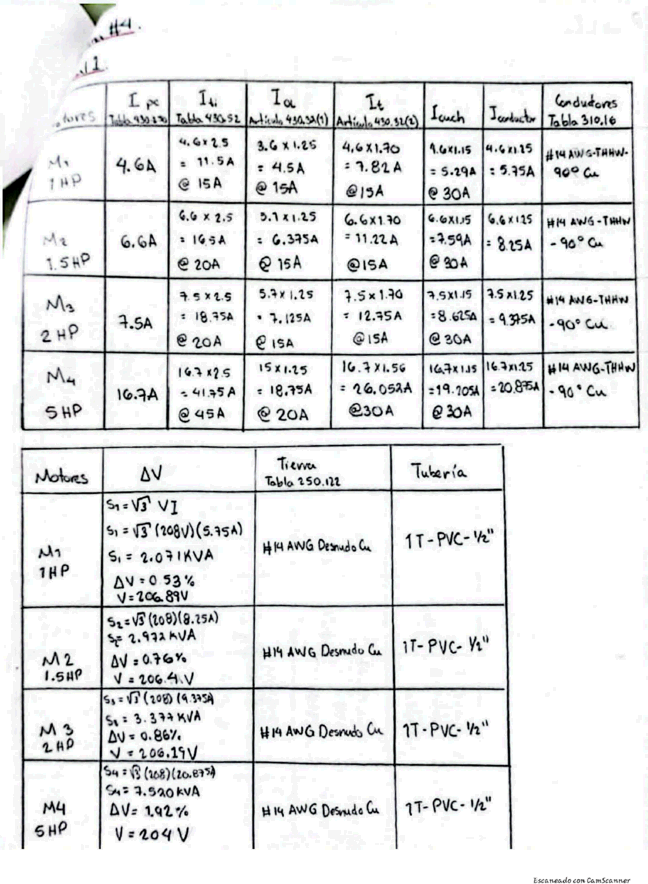 #4.
1.
I pc
Tabla 430.250
I ti
Tabla 430.52
I OL
Artículo 430.32(1)
I t
Artículo 430.32(2)
I cuch
I conductor
Conductores
Tabla 310.16
M1
1 HP
4.6A
4.6 x 2.5
= 11.5A
@ 15A
3.6 x 1.25
= 4.5A
@ 15A
4.6 x 1.70
= 7.82A
@15A
4.6x1.15
= 5.29A
@ 30A
4.6x1.25
= 5.75A
#14 AWG-THHW-
90° Cu
M2
1.5 HP
6.6A
6.6 x 2.5
= 16.5A
@ 20A
5.1 x 1.25
= 6.375A
@ 15A
6.6 x 1.70
= 11.22A
@15A
6.6x1.15
=7.59A
@ 30A
6.6x1.25
= 8.25A
#14 AWG-THHW
- 90° Cu
M3
2 HP
7.5A
7.5 x 2.5
= 18.75A
@ 20A
5.7 x 1.25
= 7.125A
@ 15A
7.5 x 1.70
= 12.75A
@15A
7.5x1.15
= 8.625A
@ 30A
7.5x1.25
= 9.375A
#14 AWG-THHW
- 90° Cu
M4
5 HP
16.7A
16.7 x 2.5
= 41.75A
@ 45A
15 x 1.25
= 18.75A
@ 20A
16.7 x 1.56
= 26.052A
@30A
16.7x1.15
=19.205A
@ 30A
16.7x1.25
=20.875A
#14 AWG-THHW
- 90° Cu
Motores
ΔV
Tierra
Tabla 250.122
Tubería
M1
1HP
S1 = √3 VI
S1 = √3 (208V)(5.75A)
S1 = 2.071KVA
ΔV = 0.53%
V = 206.89V
#14 AWG Desnudo Cu
1T-PVC-1/2"
M2
1.5HP
S2 = √3 (208)(8.25A)
S2= 2.972 KVA
ΔV = 0.76%
V = 206.4.V
#14 AWG Desnudo Cu
1T-PVC-1/2"
M3
2HP
S3 = √3 (208)(9.375A)
S3 = 3.377 KVA
ΔV = 0.86%
V = 206.19V
#14 AWG Desnudo Cu
1T-PVC-1/2"
M4
5HP
S4 = √3 (208)(20.875)
S4= 7.520KVA
ΔV = 1.92%
V = 204 V
#14 AWG Desnudo Cu
1T-PVC-1/2"
Escaneado con CamScanner